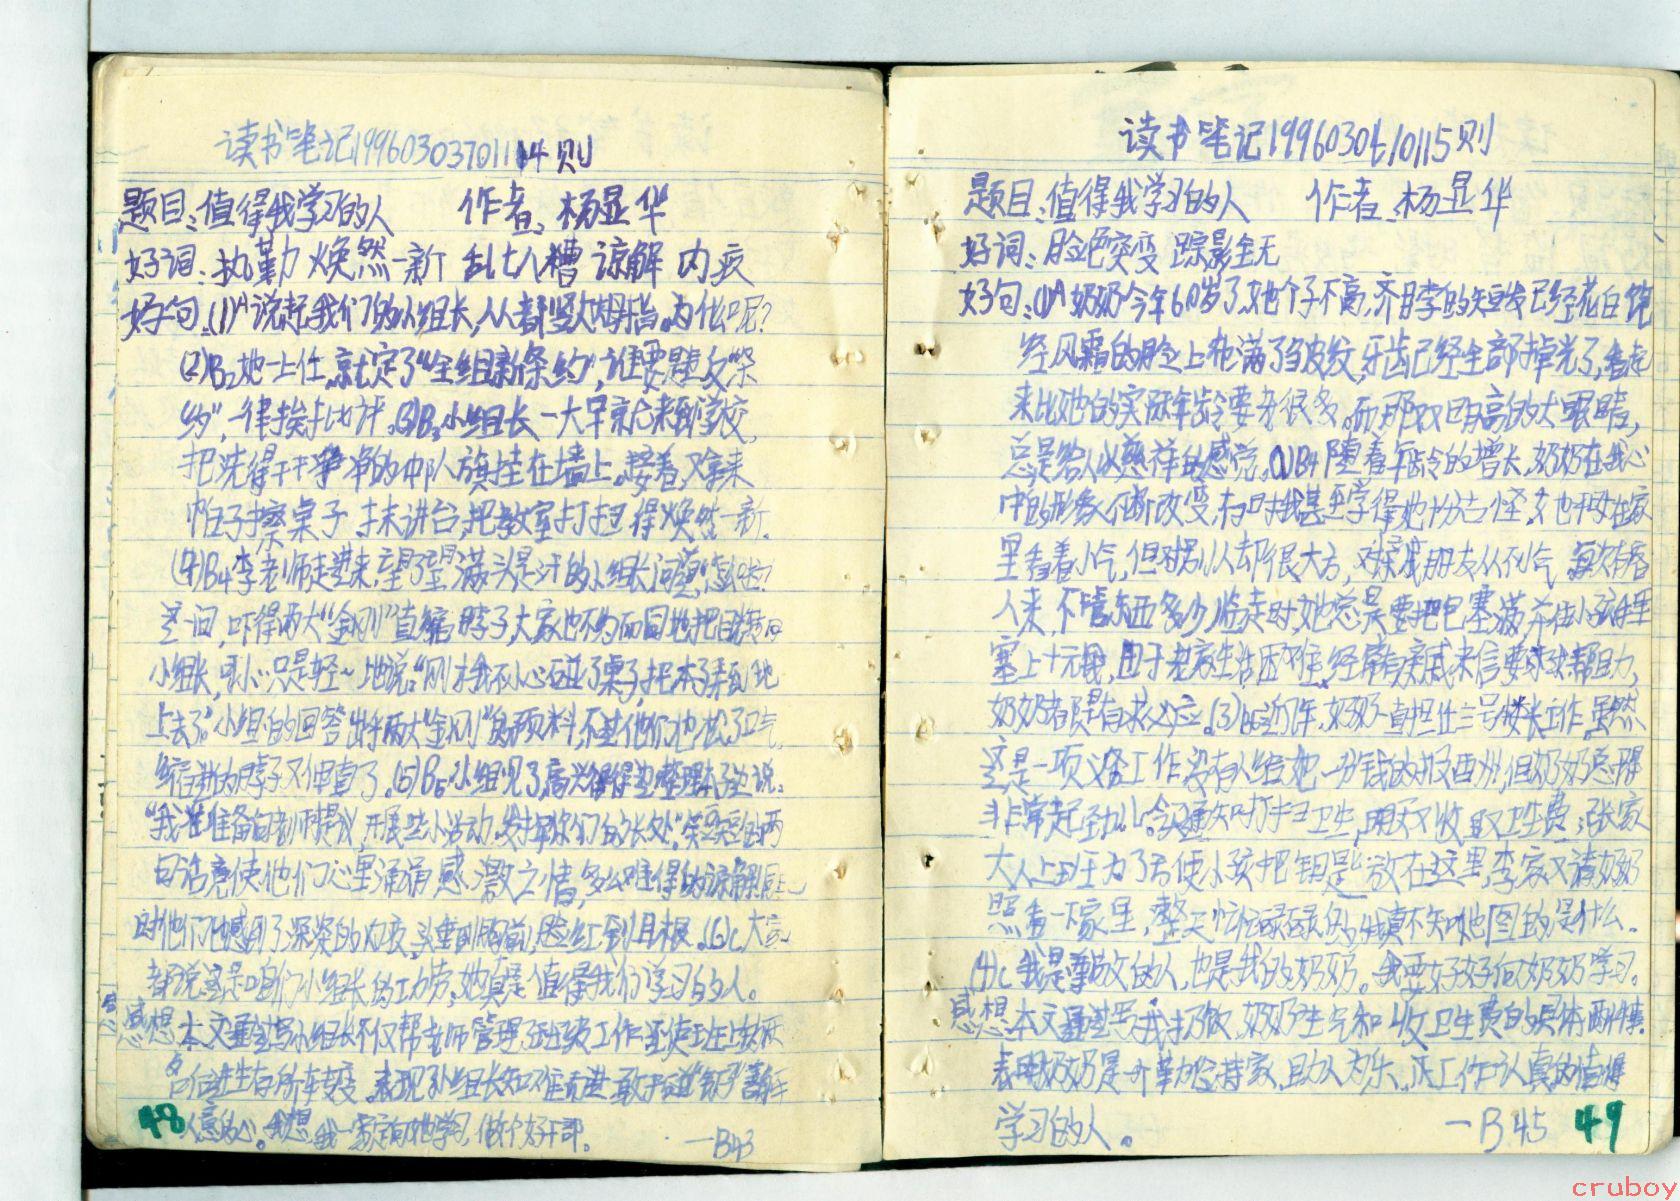 读书笔记19960303701114则
题目:值得我学习的人 作者:杨显华
好词:执勤 焕然一新 乱七八糟 谅解 内疚
好句:(1)A说起我们的小组长,人人都竖大拇指。为什么呢?
(2)B2她一上任,就定了“全组新条约”,谁要是违反“条
约”,一律挨批评。(3)B3小组长一大早就来到学校,
把洗得干干净净的中队旗挂在墙上。接着,又拿来
帕子擦桌子、抹讲台,把教室打扫得焕然一新。
(4)B4李老师走进来,望了望满头是汗的小组长问道
这一问,吓得两大“金刚”直缩脖子,大家也不约而同地把目光
小组长,只是轻轻地说:“刚才我不小心碰了桌子,把本子弄到地
上去了。”小组长的回答出乎两大“金刚”的预料,他们也松了口气,
缩着的脖子又伸直了。(5)B5小组长见了,高兴得边整理本子边说:
“我准备向老师提议,开展些小活动,发挥你们的长处”
句话竟使他们心里涌满感激之情,多么难得的谅解
他们也感到了深深的内疚,头垂到胸前,脸红到耳根。(6)C大家
都说这是咱们小组长的功劳,她真是值得我们学习的人。
感想 本文通过写小组长不仅帮老师管理班级工作,还使班上的两
名后进生有所转变,表现了小组长知难而进、敢于 善解
人意的心。我想我一定要向她学习,做个好干部。
48 —B43
读书笔记19960306七10115则
题目:值得我学习的人 作者:杨显华
好词:脸色突变 踪影全无
好句:(1)A奶奶今年60岁了,她个子不高,齐耳的短发已经花白,饱
经风霜的脸上布满了皱纹,牙齿已经全部掉光了,看起
来比她的实际年龄要老很多。而那双凹陷的大眼睛,
总是给人以慈祥的感觉。(2)B4随着年龄的增长,奶奶在我心
中的形象不断改变,有时我甚至觉得她十分古怪。她平时在家
里看着小气,但对别人却很大方,对亲戚朋友从不小气,每次有客
人来,不管东西多少,临走时,她总是要把包塞满,并往小孩手里
塞上十元钱,由于老家生活困难,经常有亲戚来信要求帮助,
奶奶都是有求必应。(3)B6近几年,奶奶一直担任三号楼楼长工作,虽然
这是一项义务工作,没有人给她一分钱的报酬,但奶奶总干得
非常起劲儿。今天通知打扫卫生,明天又收取卫生费;张家
大人上班为了方便小孩把钥匙放在这里,李家又请奶奶
照看一下家里,整天忙忙碌碌的,我真不知她图的是什么。
(4)C我是 的人,也是我的奶奶。我要好好向奶奶学习。
感想 本文通过写我扔饭,奶奶生气和收卫生费的具体两件事,
表明奶奶是一个勤俭持家、助人为乐、工作认真的值得
学习的人。
—B45 49
cruboy